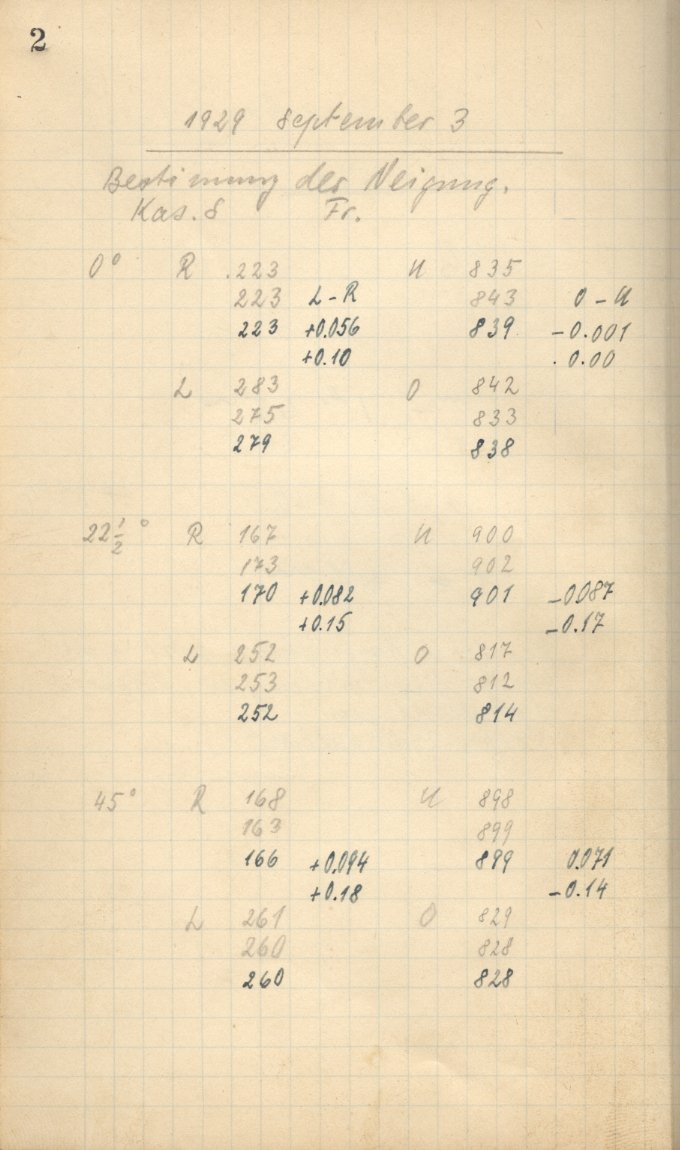 2
1929 September 3
Bestimmung der Neigung.
Kas. S Fr.
0° R .223 U 835
223 L-R 843 O-U
223 +0.056 839 -0.001
+0.10 . 0.00
L 283 O 842
275 833
279 838
22 1/2° R 167 U 900
173 902
170 +0.082 901 -0.087
+0.15 -0.17
L 252 O 817
253 812
252 814
45° R 168 U 898
163 899
166 +0.094 899 0.071
+0.18 -0.14
L 261 O 829
260 828
260 828